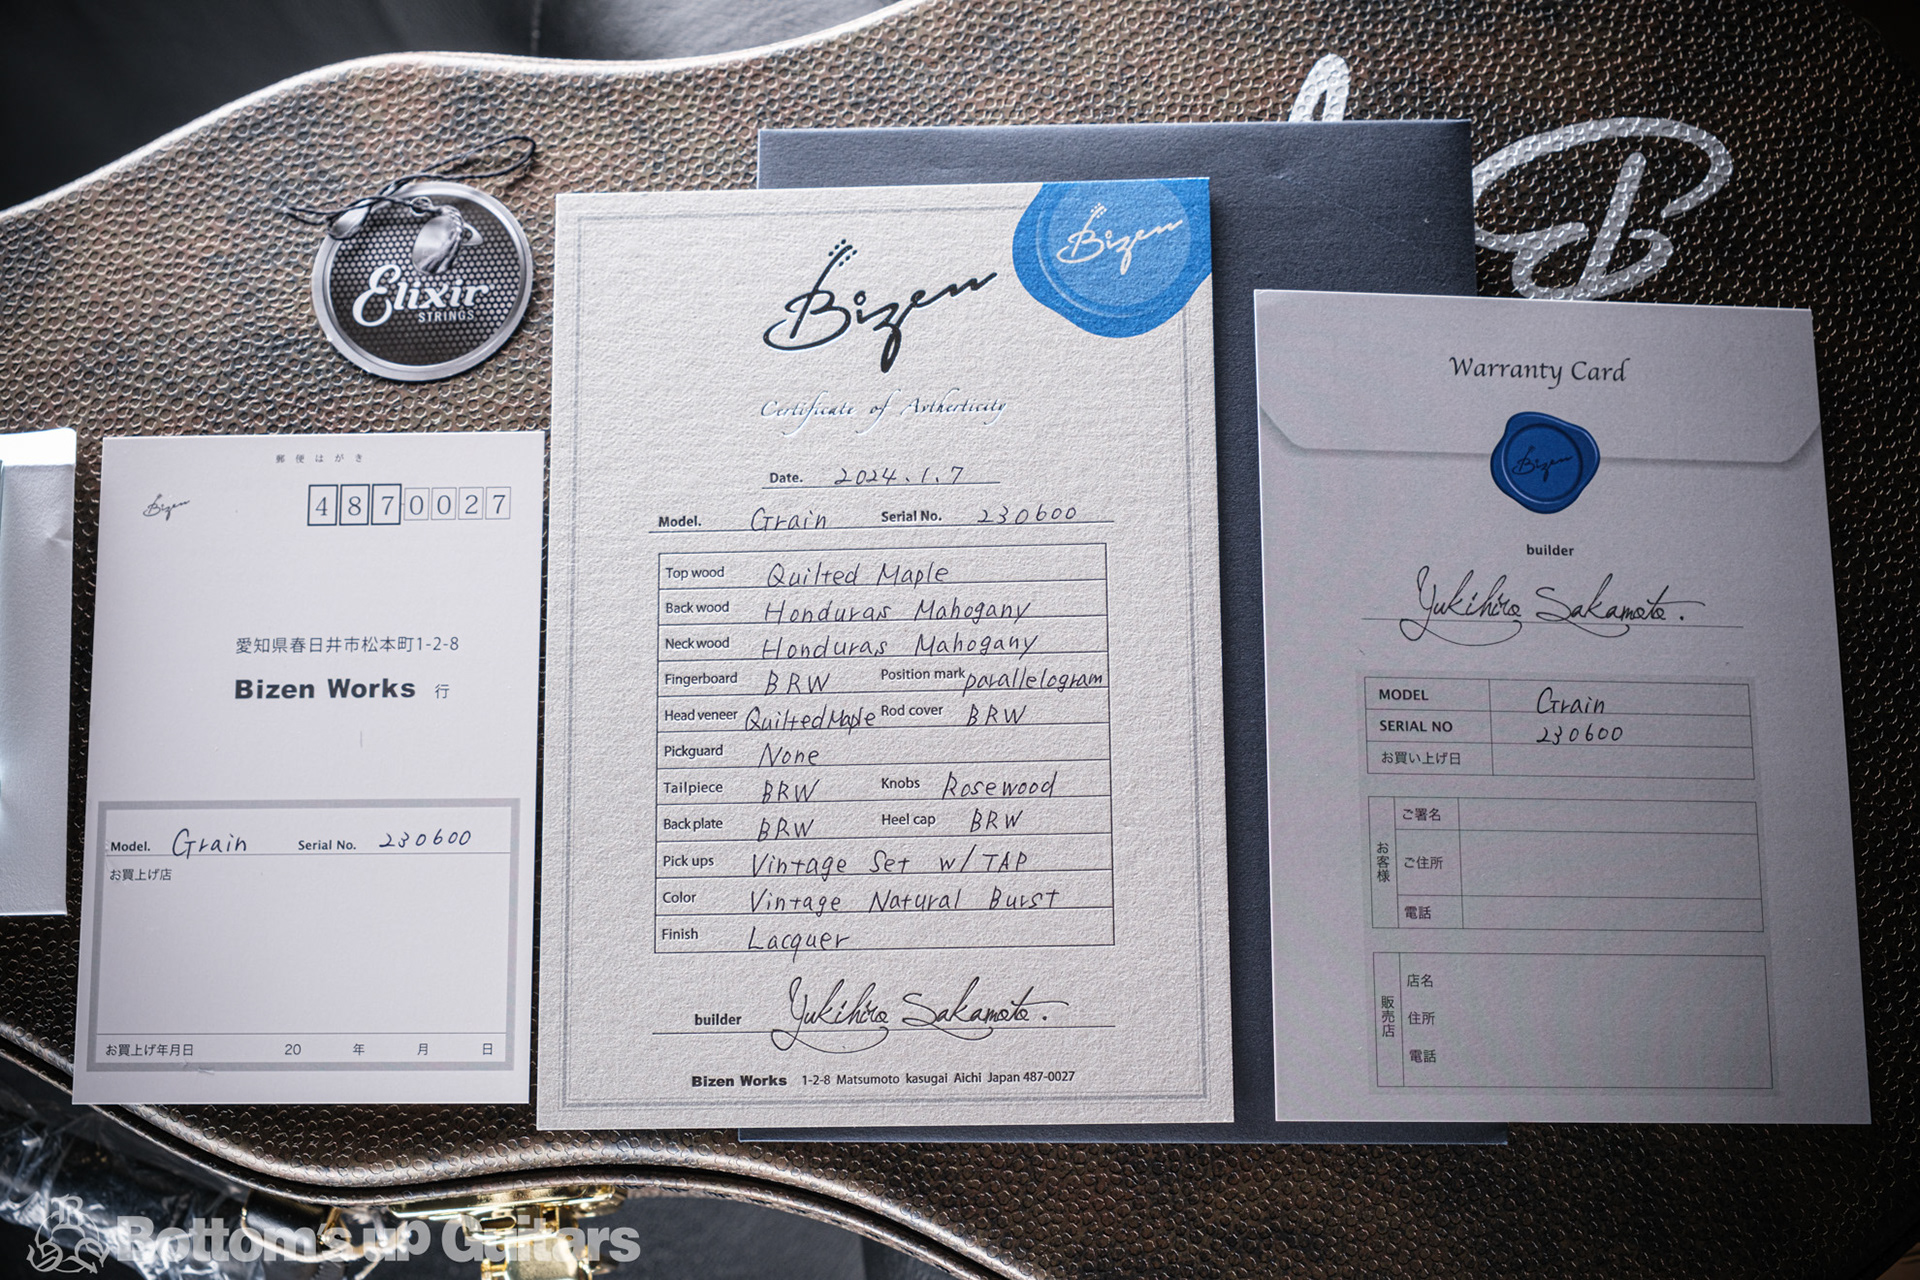 Elixir
STRINGS
郵便はがき
Bizen
4870027
愛知県春日井市松本町1-2-8
Bizen Works 行
Model. Grain Serial No. 230600
お買上げ店
お買上げ年月日 20 年 月 日
Bizen
Bizen
Certificate of Avtherticity
Date. 2024.1.7
Model. Grain Serial No. 230600
Top wood Quilted Maple
Back wood Honduras Mahogany
Neck wood Honduras Mahogany
Fingerboard BRW Position mark parallelogram
Head veneer Quilted Maple Rod cover BRW
Pickguard None
Tailpiece BRW Knobs Rosewood
Back plate BRW Heel cap BRW
Pick ups Vintage Set w/TAP
Color Vintage Natural Burst
Finish Lacquer
builder Yukihiro Sakamoto.
Bizen Works 1-2-8 Matsumoto kasugai Aichi Japan 487-0027
Warranty Card
Bizen
builder
Yukihiro Sakamoto.
MODEL Grain
SERIAL NO 230600
お買い上げ日
お客様
ご署名
ご住所
電話
販売店
店名
住所
電話
Bottom's up Guitars